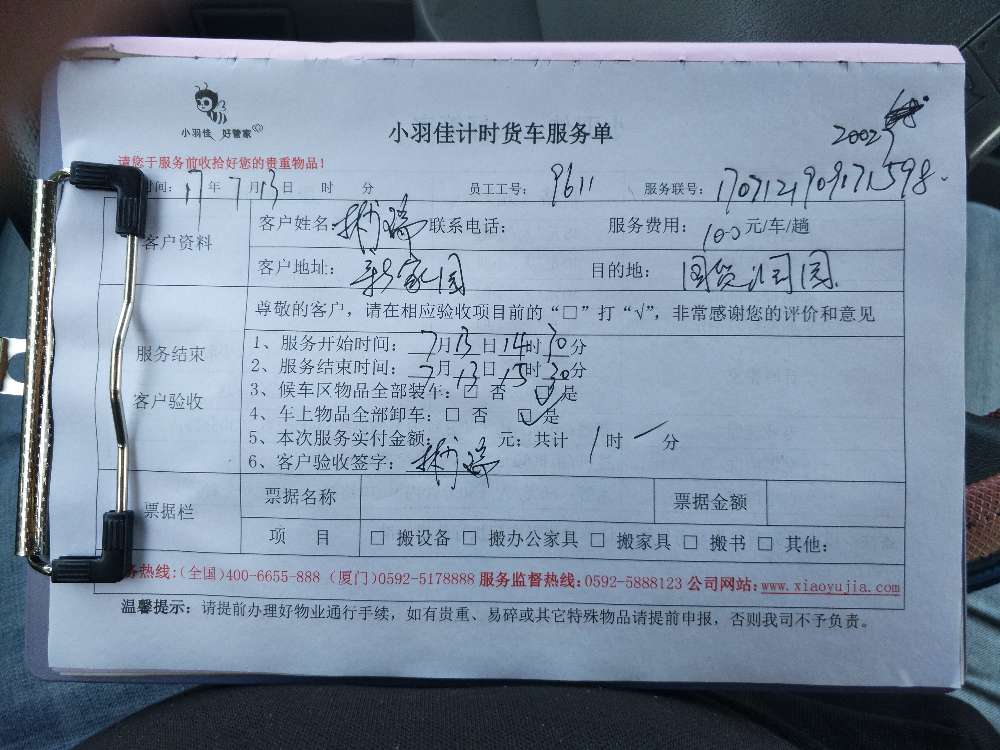 小羽佳 好管家
小羽佳计时货车服务单
20027
请您于服务前收拾好您的贵重物品!
间: 17 年 7 月 13 日 时 分 员工工号: 9611 服务联号: 170712190917598
客户资料
客户姓名: 联系电话: 服务费用: 100 元/车/趟
客户地址: 家园 目的地: 国贸 园
服务结束
客户验收
尊敬的客户,请在相应验收项目前的“□”打“√”,非常感谢您的评价和意见
1、服务开始时间: 7月13日14时30分
2、服务结束时间: 7月13日15时30分
3、候车区物品全部装车:□ 否 ☑是
4、车上物品全部卸车:□ 否 ☑是
5、本次服务实付金额: 元;共计 1 时 一 分
6、客户验收签字:
票据栏
票据名称 票据金额
项 目 □ 搬设备 □ 搬办公家具 □ 搬家具 □ 搬书 □ 其他:
务热线:(全国)400-6655-888 (厦门)0592-5178888 服务监督热线:0592-5888123 公司网站:www.xiaoyujia.com
温馨提示:请提前办理好物业通行手续,如有贵重、易碎或其它特殊物品请提前申报,否则我司不予负责。